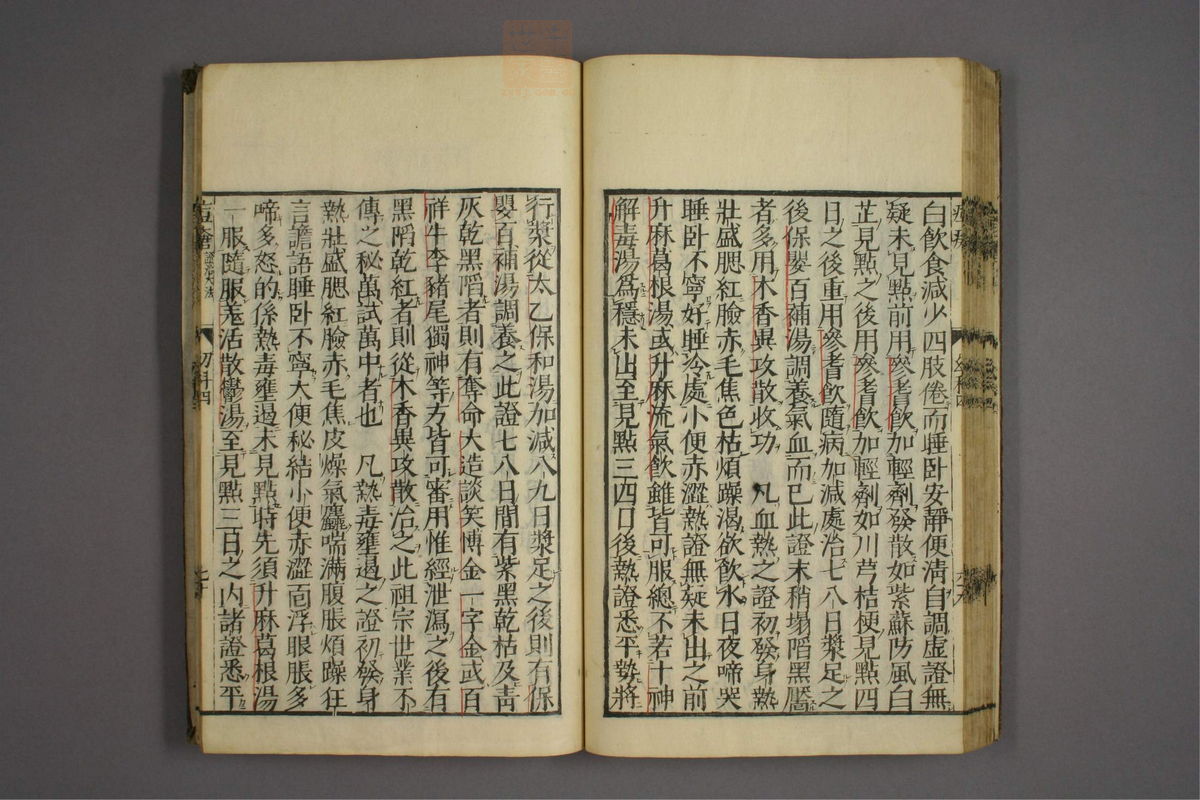 白飲食減少四肢倦而睡卧安靜便淸自調虛證無
疑未見點前用參耆飮加輕劑發散如紫蘇防風白
芷見點之後用參耆飮加輕劑如川芎桔梗見點四
日之後重用參耆飮隨病加減處治七八日漿足之
後保嬰百補湯調養氣血而已此證末稍塌陷黑靨
者多用木香異攻散收功 凡血熱之證初發身熱
壯盛腮紅臉赤毛焦色枯煩躁渴欲飮水日夜啼哭
睡卧不寧好睡冷處小便赤澀熱證無疑未出之前
升麻葛根湯或升麻流氣飮雖皆可服總不若十神
解毒湯爲穩未出至見點三四日後熱證悉平勢將
行漿從太乙保和湯加減八九日漿足之後則有保
嬰百補湯調養之此證七八日間有紫黑乾枯及靑
灰乾黑陷者則有奪命大造談笑博金一字金武百
祥牛李豬尾獨神等方皆可審用惟經泄瀉之後有
黑陷乾紅者則從木香異攻散治之此祖宗世業不
傳之秘萬試萬中者也 凡熱毒壅遏之證初發身
熱壯盛腮紅臉赤毛焦皮燥氣麤喘滿腹脹煩躁狂
言譫語睡卧不寧大便秘結小便赤澀面浮眼脹多
啼多怒的係熱毒壅遏未見點時先須升麻葛根湯
一服隨服羗活散鬱湯至見點三日之內諸證悉平